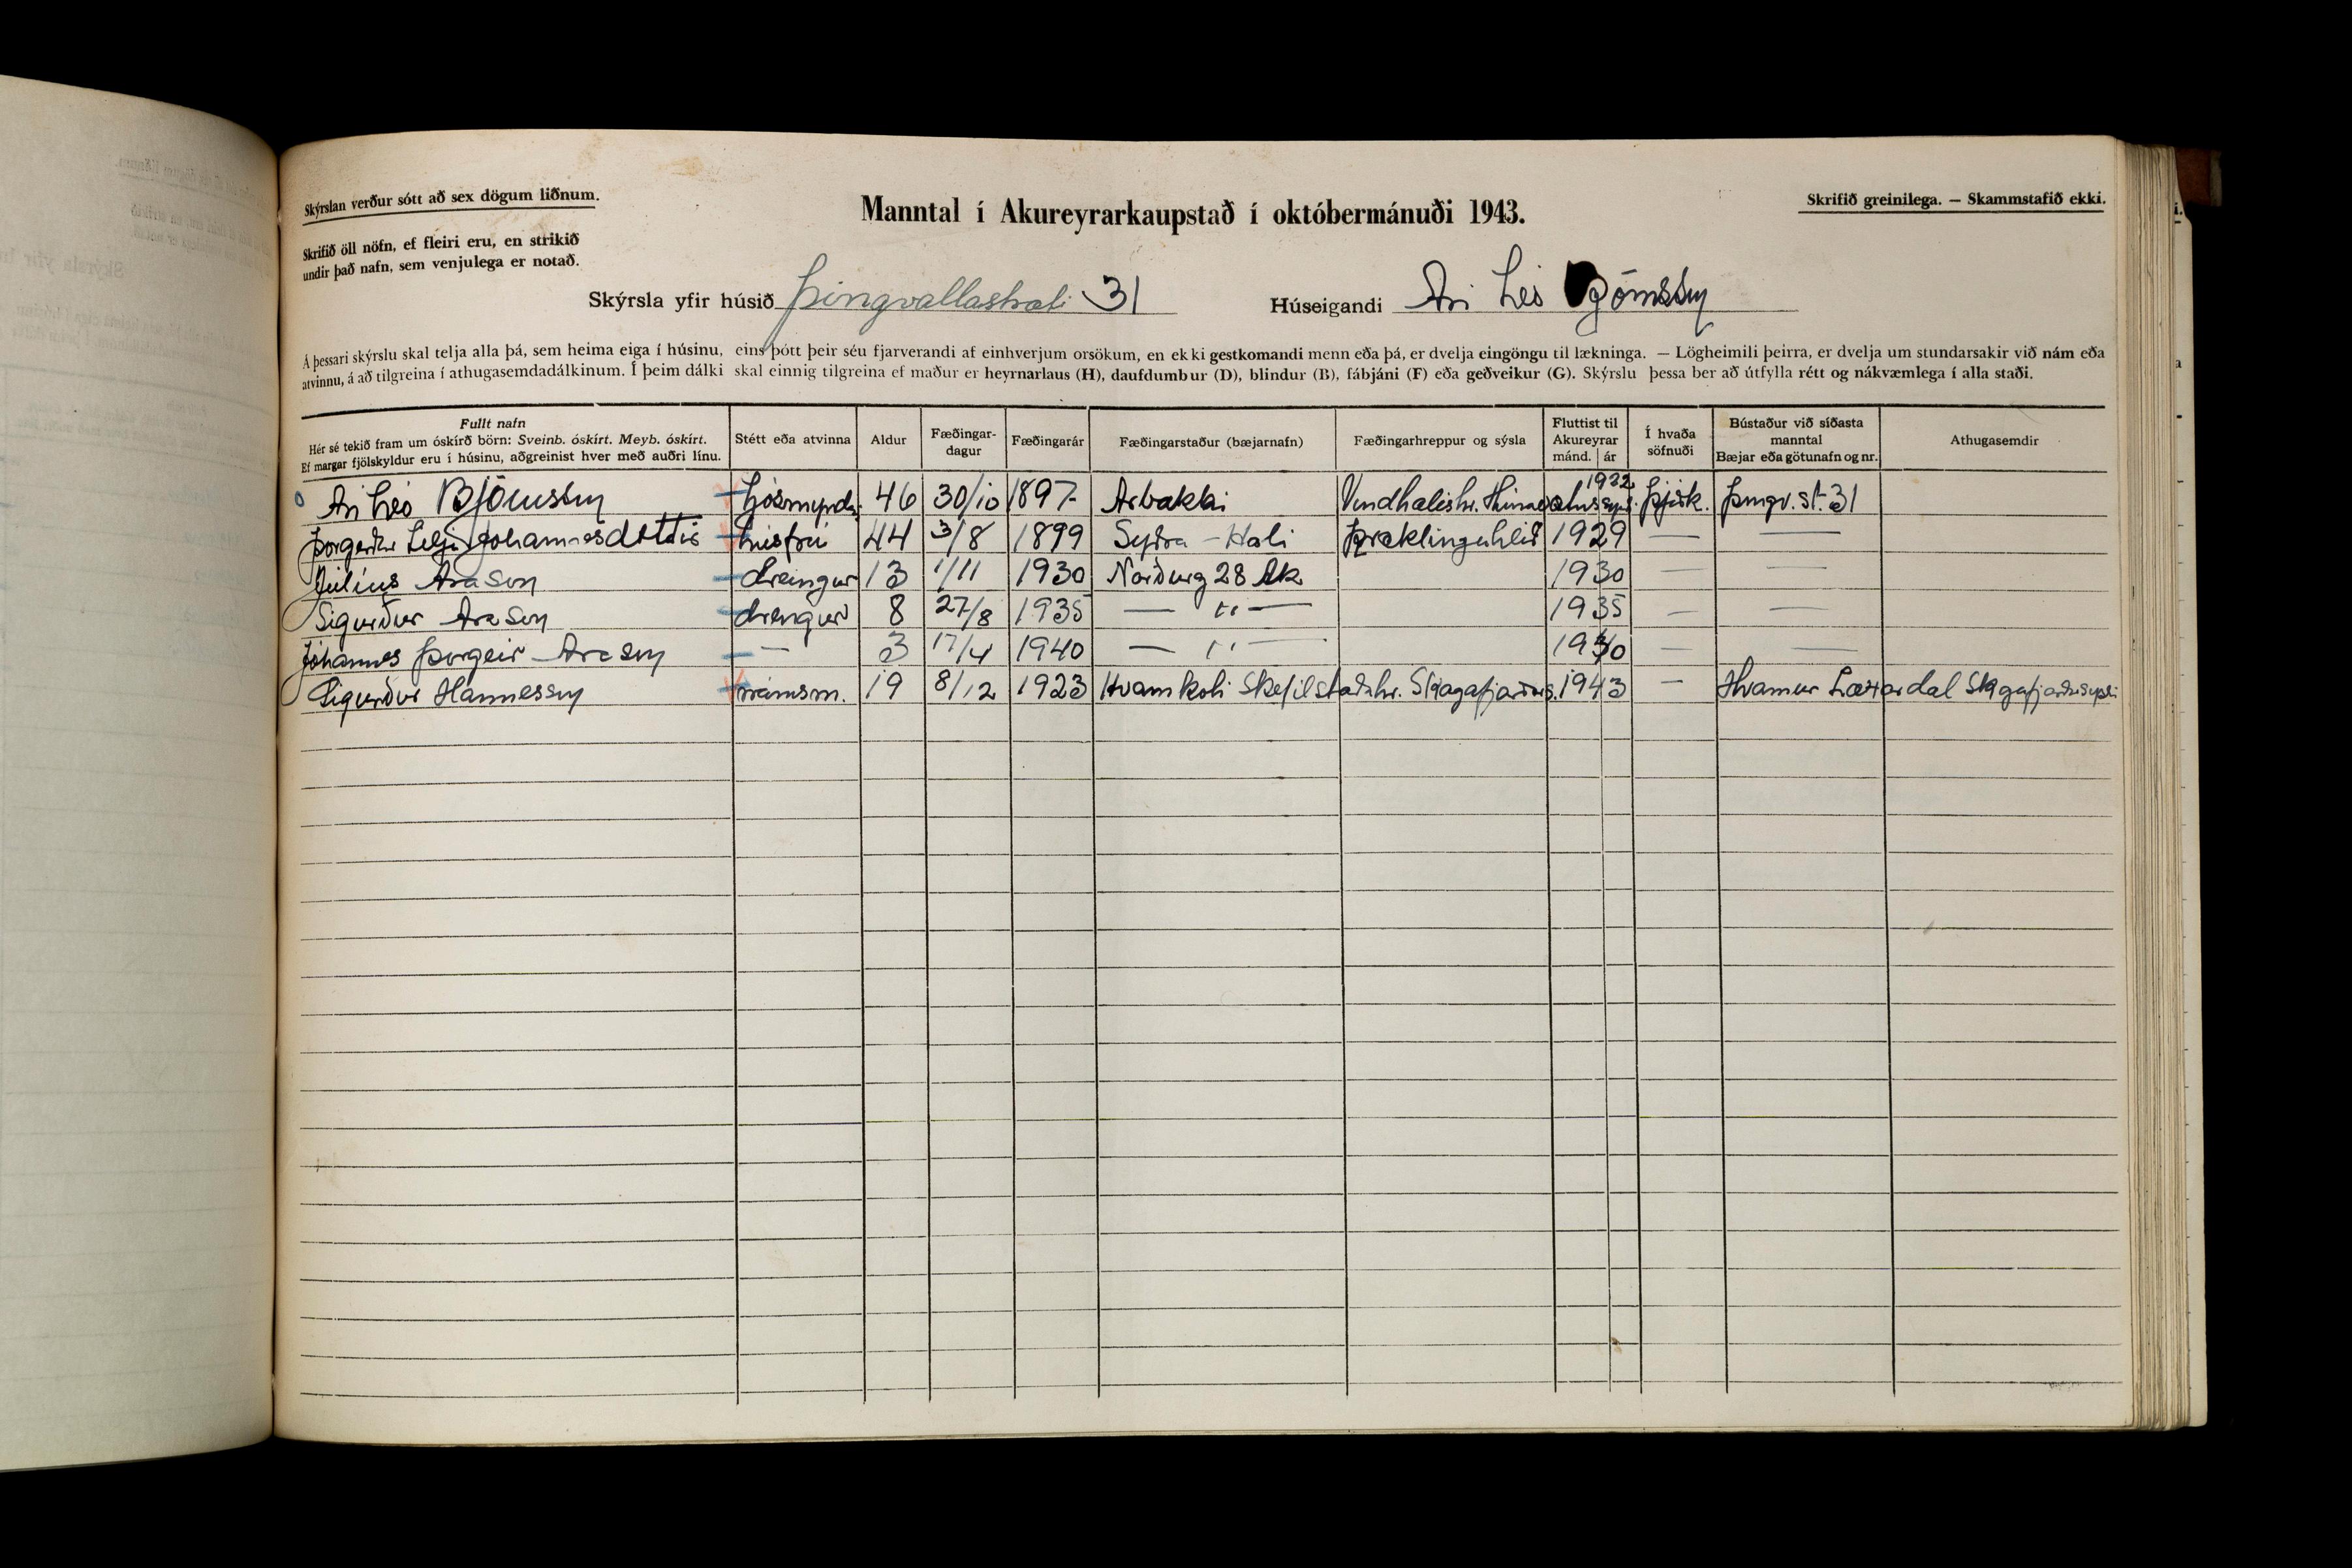 Skýrslan verður sótt að sex dögum liðnum.
Manntal í Akureyrarkaupstað í októbermánuði 1943.
Skrifið greinilega. — Skammstafið ekki.
Skrifið öll nöfn, ef fleiri eru, en strikið
undir það nafn, sem venjulega er notað.
Skýrsla yfir húsið Þingvallastræti 31 Húseigandi Ari Leó Björnsson
Á þessari skýrslu skal telja alla þá, sem heima eiga í húsinu, eins þótt þeir séu fjarverandi af einhverjum orsökum, en ekki gestkomandi menn eða þá, er dvelja eingöngu til lækninga. — Lögheimili þeirra, er dvelja um stundarsakir við nám eða
atvinnu, á að tilgreina í athugasemdadálkinum. Í þeim dálki skal einnig tilgreina ef maður er heyrnarlaus (H), daufdumbur (D), blindur (B), fábjáni (F) eða geðveikur (G). Skýrslu þessa ber að útfylla rétt og nákvæmlega í alla staði.
Fullt nafn
Hér sé tekið fram um óskírð börn: Sveinb. óskírt. Meyb. óskírt.
Ef margar fjölskyldur eru í húsinu, aðgreinist hver með auðri línu.
Stétt eða atvinna
Aldur
Fæðingar-
dagur
Fæðingarár
Fæðingarstaður (bæjarnafn)
Fæðingarhreppur og sýsla
Fluttist til
Akureyrar
mánd. | ár
Í hvaða
söfnuði
Bústaður við síðasta
manntal
Bæjar eða götunafn og nr.
Athugasemdir
Ari Leó Björnsson ljósmynda. 46 30/10 1897 Arbakki Vindhælishr. Húnavatnssýs. 1932 þjóðk. Þingv.st. 31
Þorgerður Lilja Jóhannesdóttir húsfrú 44 3/8 1899 Syðra-Hóli Kræklingahlíð 1929 — —
Júlíus Arason dreingur 13 1/11 1930 Norðurg 28 Ak 1930 — —
Sigurður Arason drengur 8 27/8 1935 — " — 1935 — —
Jóhannes Þorgeir Arason — 3 17/4 1940 — " — 1940 — —
Sigurður Hannesson námsm. 19 8/12 1923 Hvamkoti Skefilstaðahr. Skagafjarðars. 1943 — Hvamur Laxárdal Skagafjarðarsýslu